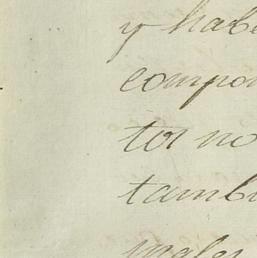 y habe
compa
tor no
tambi